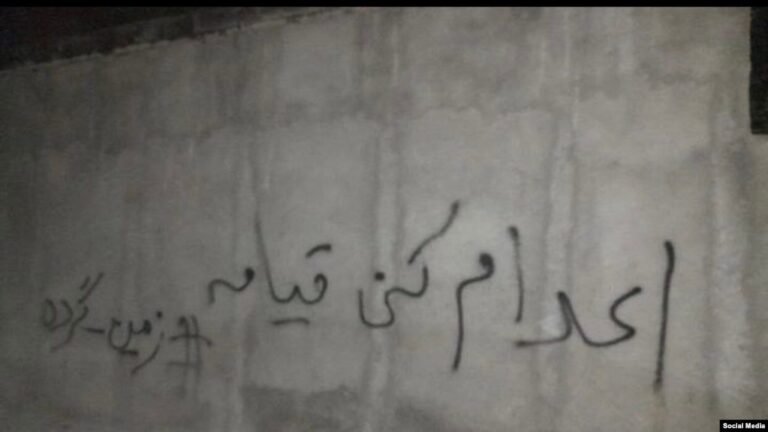 اعدام کنی قیامه
#و_زمین_گرده
Social Media